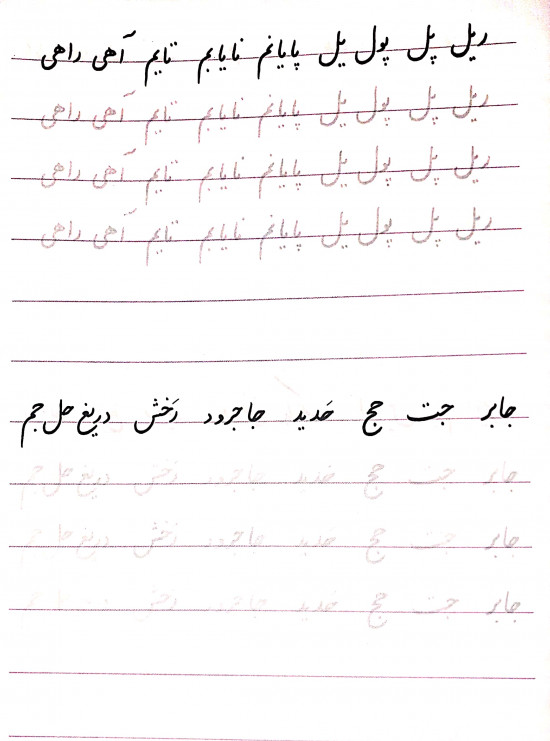 ریل پل پول یل پایانم نایابم تایم آهی راهی
ریل پل پول یل پایانم نایابم تایم آهی راهی
ریل پل پول یل پایانم نایابم تایم آهی راهی
ریل پل پول یل پایانم نایابم تایم آهی راهی
جابر جت حج حَدید جاجرود رَخش دریغ حل جم
جابر جت حج حدید جاجرود رخش دریغ حل جم
جابر جت حج حدید جاجرود رخش دریغ حل جم
جابر جت حج حدید جاجرود رخش